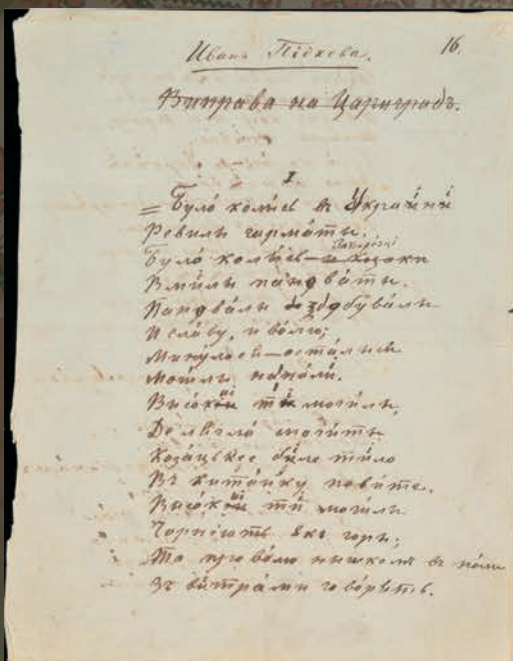 Иванъ Підкова.
16.
Виправа на Цариградъ.
I
Було колысь въ Украйни
Ревилы гарматы.
Було колысь Запорозці и Козаки
Вмилы пановаты.
Пановалы и здобувалы
И славу, и волю;
Минулося—осталыся
Могилы на поли.
Высокіи ти могилы,
Де лягло спочиты
Козацькее биле тило
Въ китайку повите.
Высокіи ти могилы
Чорніють якъ горы;
Та про волю нышкомъ въ поли
Зъ витрами говорять.